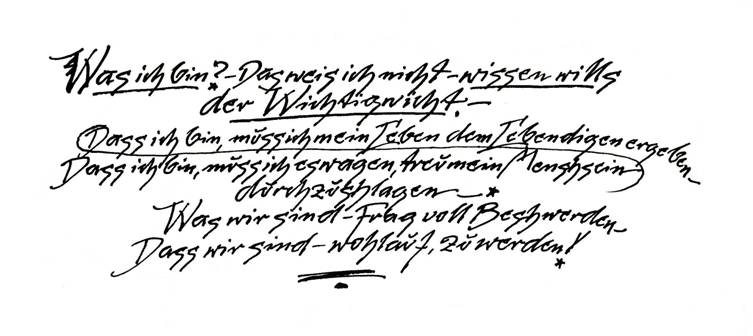 Was ich bin? – Das weis ich nicht – wissen wills
der Wichtigwicht. –
Dass ich bin, müss ich mein Leben dem Lebendigen ergeben –
Dass ich bin, müss ich es wagen, treu mein Menshsein
durchzuschlagen – *
Was wir sind – Frag voll Beshwerden –
Dass wir sind – wohlauf, zu werden! *